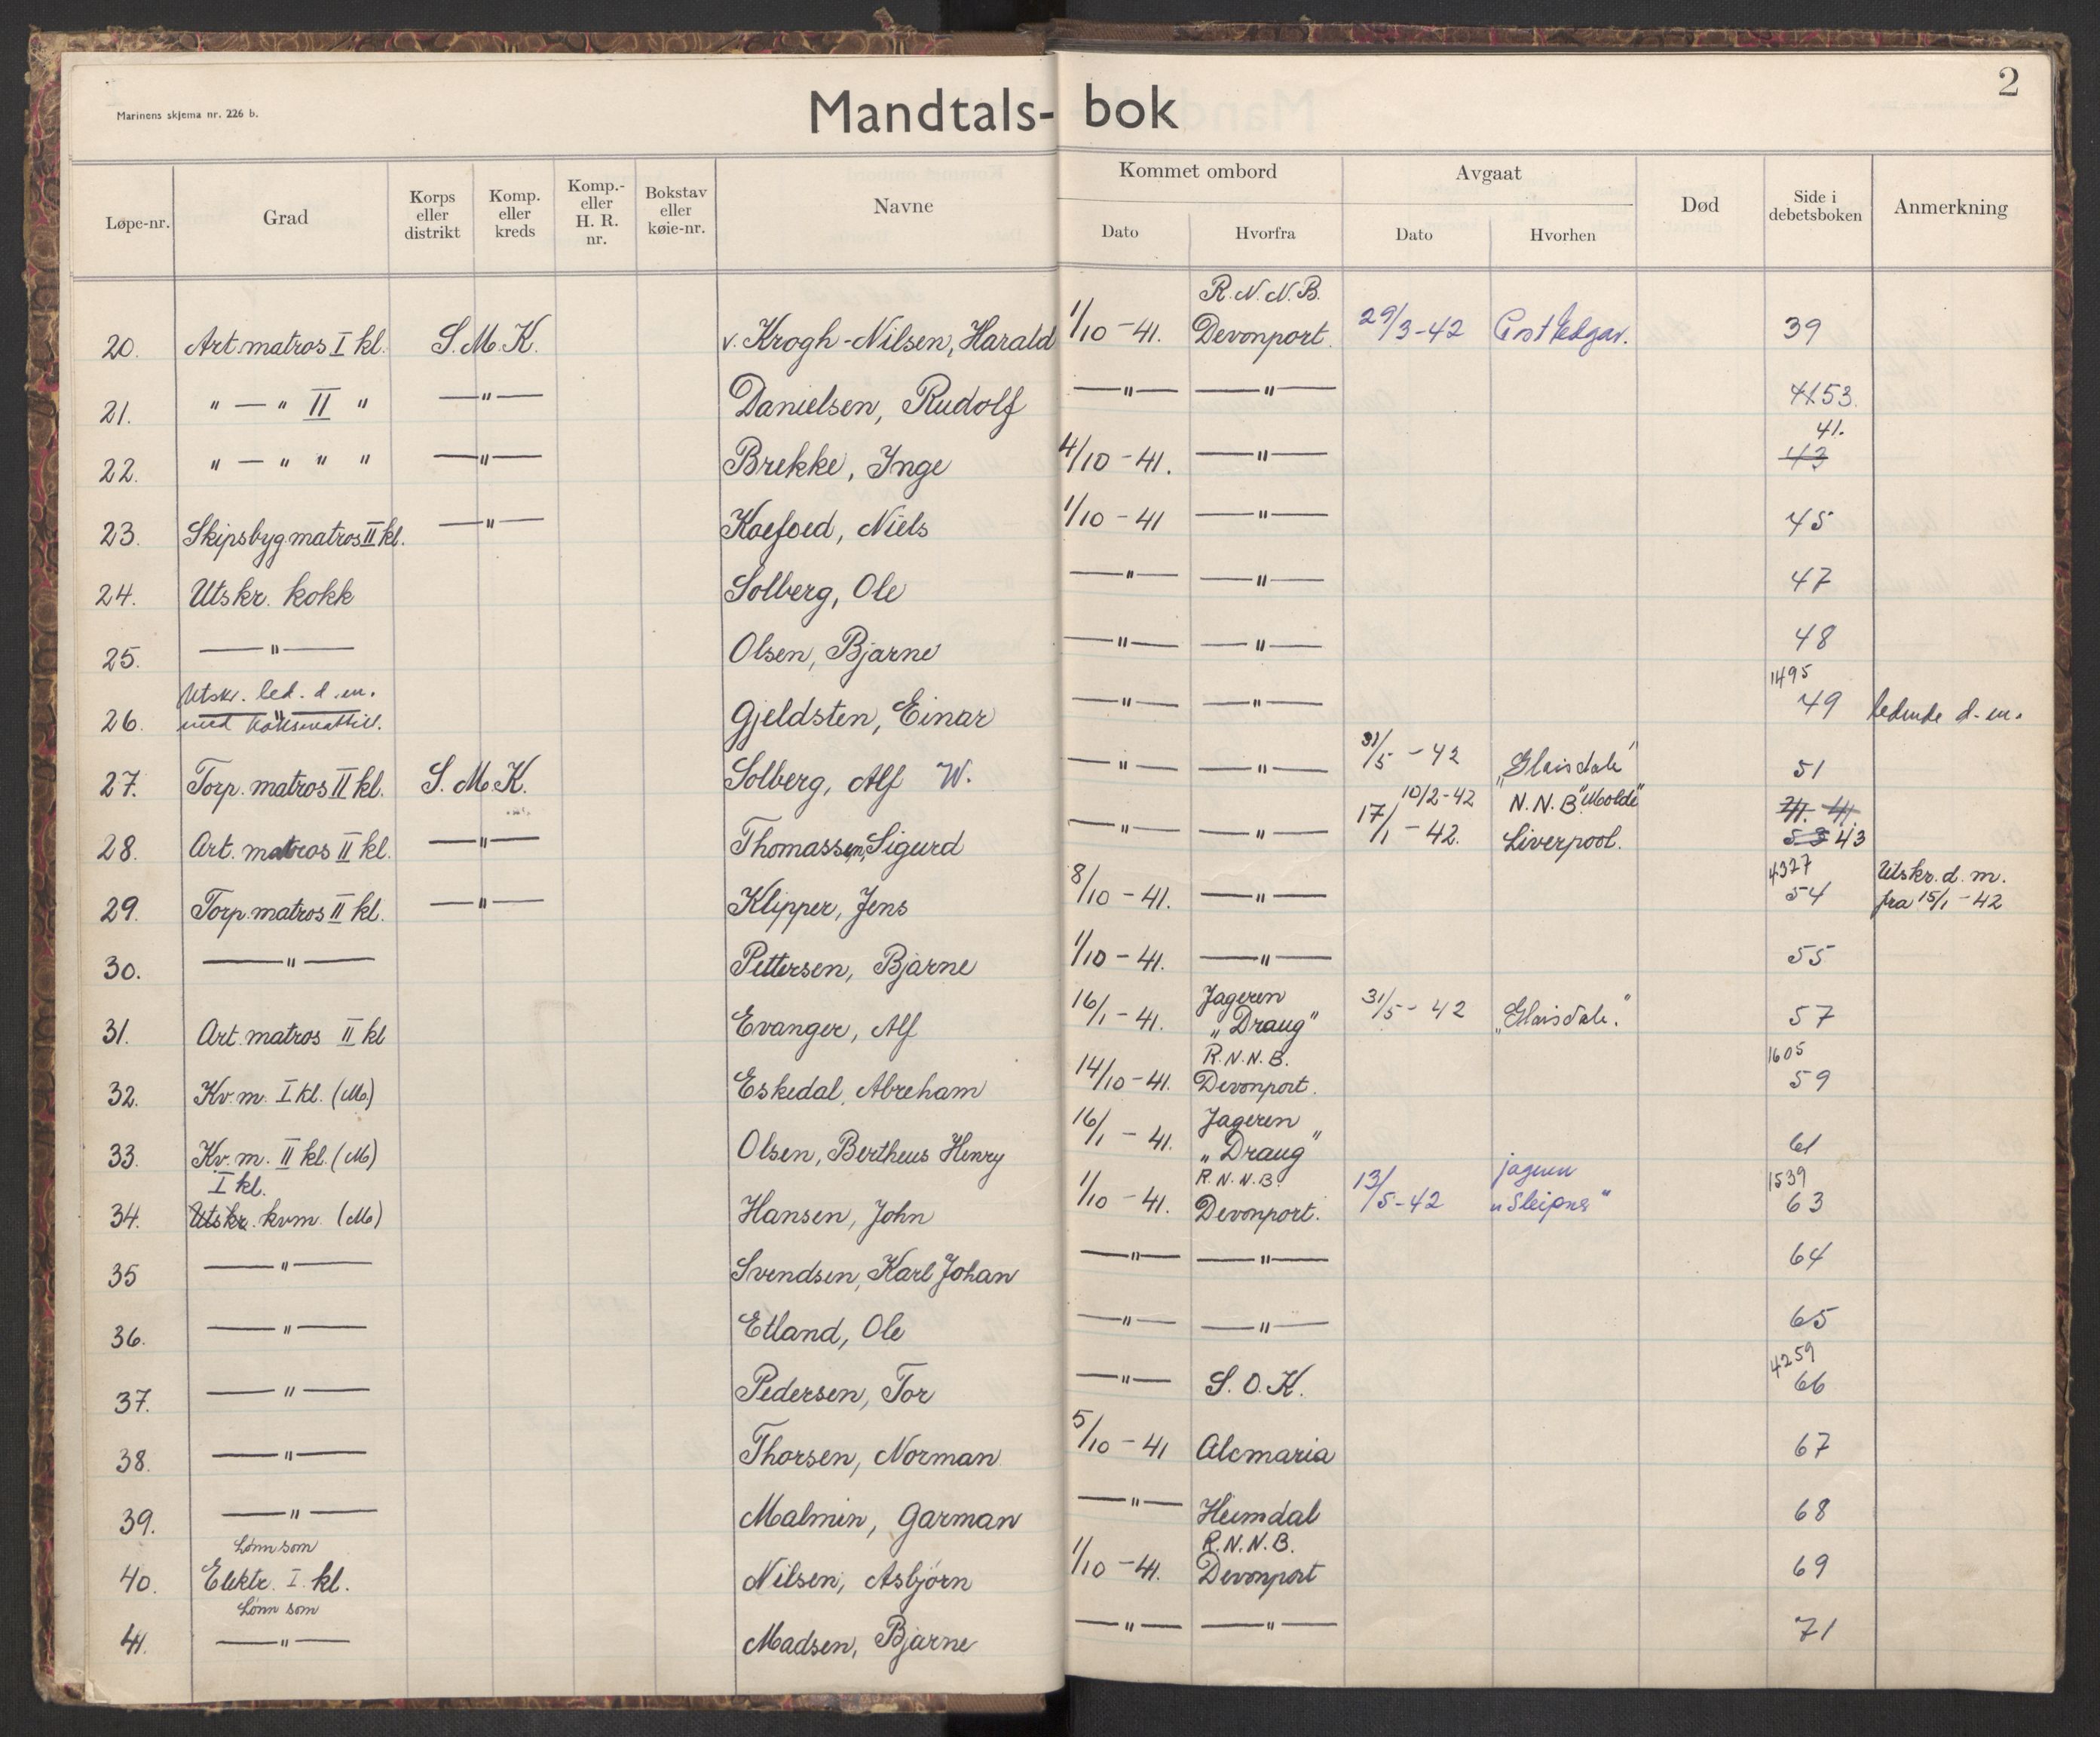 2
Marinens skjema nr. 226 b.
Mandtals- bok
Løpe-nr. Grad Korps eller distrikt Komp. eller kreds Komp.- eller H. R. nr. Bokstav eller køie-nr. Navne Kommet ombord Dato Hvorfra Avgaat Dato Hvorhen Død Side i debetsboken Anmerkning
R. N. N. B.
20. Art. matros I kl. S. M. K. v. Krogh-Nilsen, Harald 1/10 - 41. Devonport. 29/3-42 Port Edgar. 39
21. " — " II " —"— Danielsen, Rudolf —"— —"— 53.
41.
22. " — " " " —"— Brekke, Inge 4/10 - 41. —"— 43
23. Skipsbyg.matros II kl. —"— Koefoed, Niels 1/10 - 41 —"— 45
24. Utskr. kokk Solberg, Ole —"— —"— 47
25. —"— Olsen, Bjarne —"— —"— 48
Utskr. led. d.m. 1495
26. —"— med Gjeldsten, Einar —"— —"— 49 ledende d.m.
27. Torp. matros II kl. S. M. K. Solberg, Alf W. —"— —"— 31/5 - 42 „Glaisdale" 51
10/2-42 N. N. B. "Molde"
28. Art. matros II kl. —"— Thomassen, Sigurd —"— —"— 17/1 - 42. Liverpool. 53 43
4327 Utskr. d. m.
29. Torp. matros II kl. —"— Klipper, Jens 8/10 - 41. —"— 54 fra 15/1 - 42
30. —"— Pettersen, Bjarne 1/10 - 41. —"— 55
Jageren
31. Art. matros II kl Evanger, Alf 16/1 - 41. „Draug" 31/5 - 42 „Glaisdale." 57
R. N. N. B. 1605
32. Kv. m. I kl. (M) Eskedal, Abreham 14/10 - 41. Devonport. 59
Jageren
33. Kv. m. II kl. (M) Olsen, Bertheus Henry 16/1 - 41. „Draug" 61
I kl. R. N. N. B. jageren 1539
34. Utskr. kvm. (M) Hansen, John 1/10 - 41. Devonport. 13/5-42 „Sleipner" 63
35 —"— Svendsen, Karl Johan —"— —"— 64
36. —"— Etland, Ole —"— —"— 65
4259
37. —"— Pedersen, Tor —"— S. O. K. 66
38. —"— Thorsen, Norman 5/10 - 41 Alcmaria 67
39. —"— Malmin, Garman —"— Heimdal 68
Lønn som R. N. N. B.
40. Elektr. I. kl. Nilsen, Asbjörn 1/10 - 41. Devonport 69
Lønn som
41. —"— Madsen, Bjarne —"— —"— 71